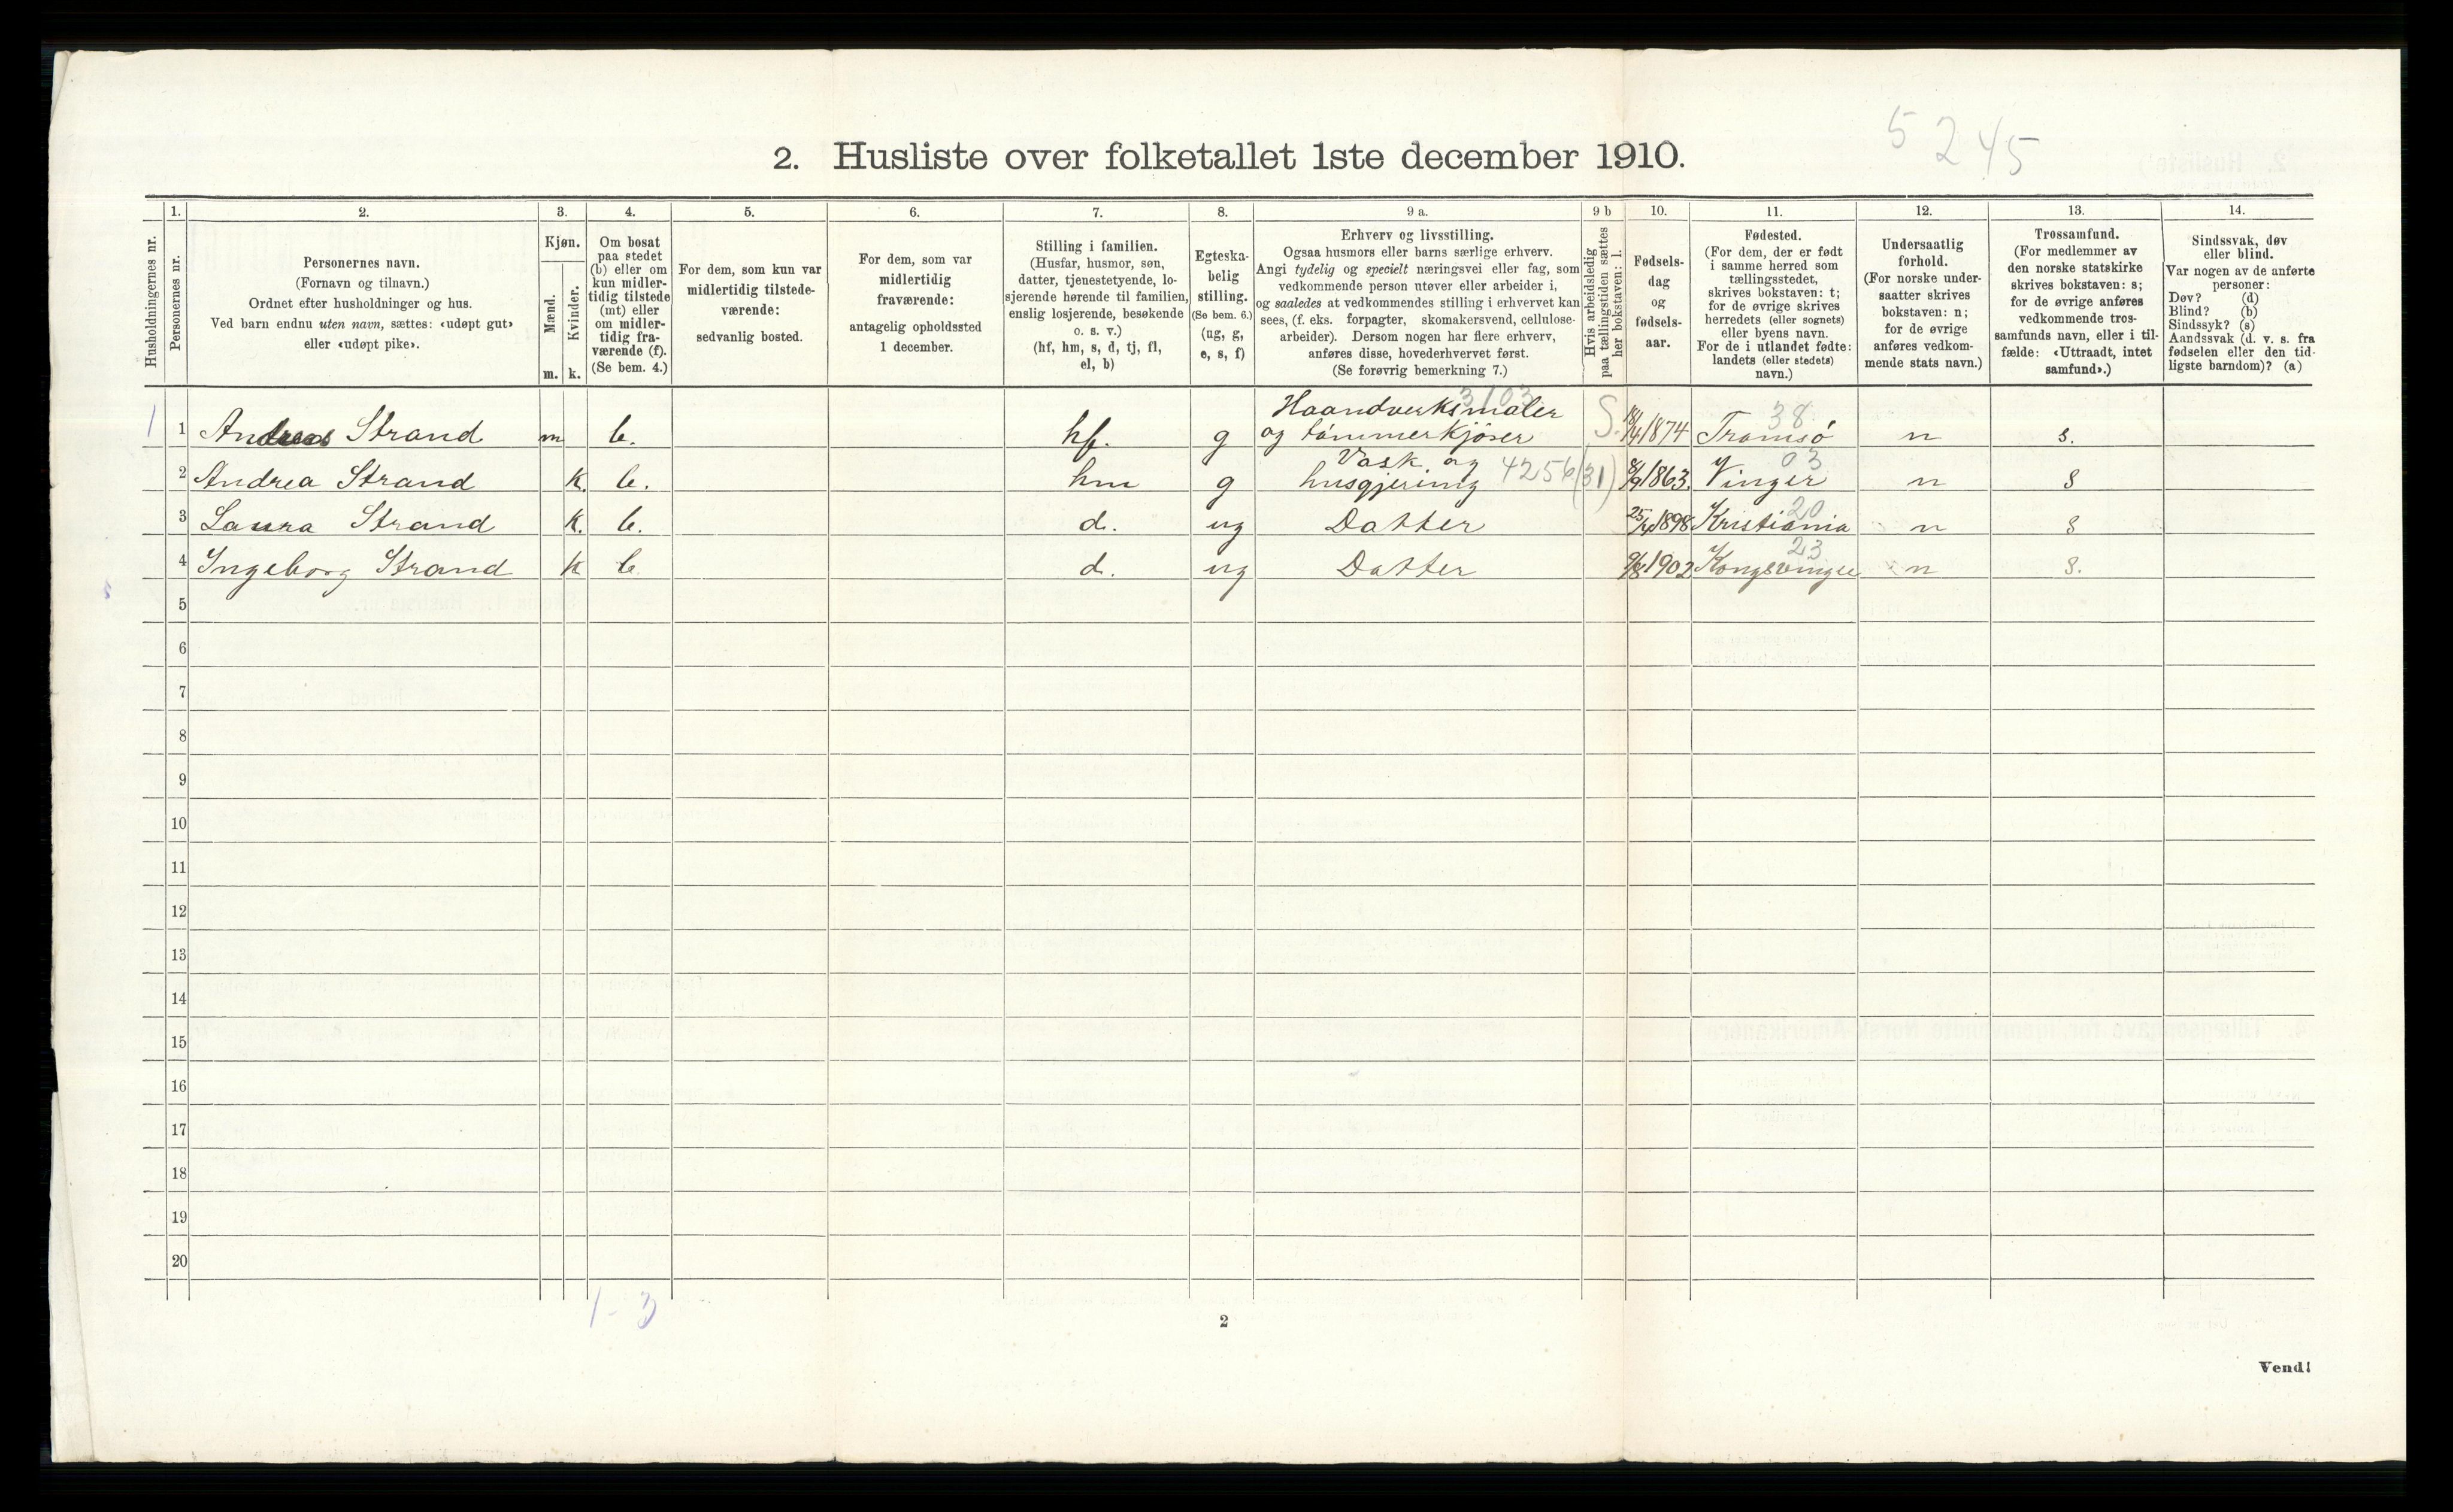 5245
2. Husliste over folketallet 1ste december 1910.
Husholdningernes nr.
1.
Personernes nr.
2.
Personernes navn.
(Fornavn og tilnavn.)
Ordnet efter husholdninger og hus.
Ved barn endnu uten navn, sættes: «udøpt gut»
eller «udøpt pike».
3.
Kjøn.
Mænd.
Kvinder.
m. k.
4.
Om bosat
paa stedet
(b) eller om
kun midler-
tidig tilstede
(mt) eller
om midler-
tidig fra-
værende (f).
(Se bem. 4.)
5.
For dem, som kun var
midlertidig tilstede-
værende:
sedvanlig bosted.
6.
For dem, som var
midlertidig
fraværende:
antagelig opholdssted
1 december.
7.
Stilling i familien.
(Husfar, husmor, søn,
datter, tjenestetyende, lo-
sjerende hørende til familien,
enslig losjerende, besøkende
o. s. v.)
(hf, hm, s, d, tj, fl,
el, b)
8.
Egteska-
belig
stilling.
(Se bem. 6.)
(ug, g,
e, s, f)
9 a.
Erhverv og livsstilling.
Ogsaa husmors eller barns særlige erhverv.
Angi tydelig og specielt næringsvei eller fag, som
vedkommende person utøver eller arbeider i,
og saaledes at vedkommendes stilling i erhvervet kan
sees, (f. eks. forpagter, skomakersvend, cellulose-
arbeider). Dersom nogen har flere erhverv,
anføres disse, hovederhvervet først.
(Se forøvrig bemerkning 7.)
9 b
Hvis arbeidsledig
paa tællingstiden sættes
her bokstaven: l.
10.
Fødsels-
dag
og
fødsels-
aar.
11.
Fødested.
(For dem, der er født
i samme herred som
tællingsstedet,
skrives bokstaven: t;
for de øvrige skrives
herredets (eller sognets)
eller byens navn.
For de i utlandet fødte:
landets (eller stedets)
navn.)
12.
Undersaatlig
forhold.
(For norske under-
saatter skrives
bokstaven: n;
for de øvrige
anføres vedkom-
mende stats navn.)
13.
Trossamfund.
(For medlemmer av
den norske statskirke
skrives bokstaven: s;
for de øvrige anføres
vedkommende tros-
samfunds navn, eller i til-
fælde: «Uttraadt, intet
samfund».)
14.
Sindssvak, døv
eller blind.
Var nogen av de anførte
personer:
Døv? (d)
Blind? (b)
Sindssyk? (s)
Aandssvak (d. v. s. fra
fødselen eller den tid-
ligste barndom)? (a)
Haandverksmaler 3103 38
1 1 Andreas Strand m b. hf. g og tømmerkjører S. 18/4 1874 Tromsö n s.
Vask og 4256 (31) 03
2 Andrea Strand k. b. hm g husgjering 8/9 1863. Vinger n s
20
3 Laura Strand k. b. d. ug Datter 25/4 1898 Kristiania n s
23
4 Ingeborg Strand k b d. ug Datter 9/8 1902 Kongsvinger n s.
5
6
7
8
9
10
11
12
13
14
15
16
17
18
19
20
1-3
2
Vend!